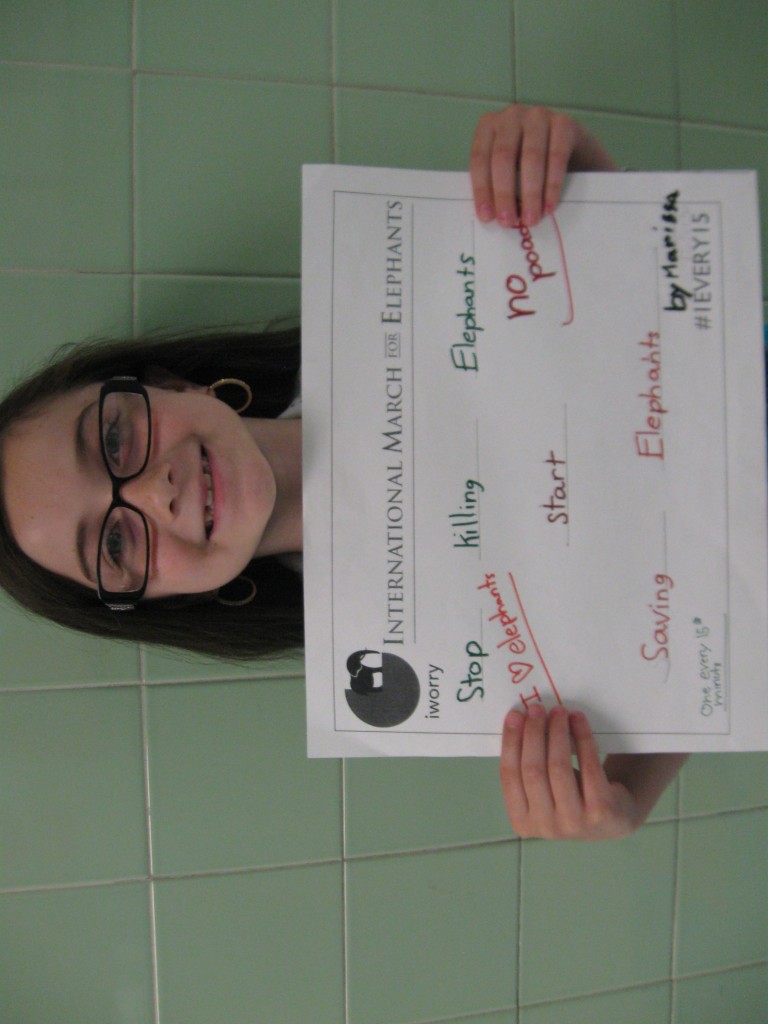 INTERNATIONAL MARCH FOR ELEPHANTS
iworry
Stop Killing Elephants
I ♡ elephants
no
Start
Saving Elephants
One every 15
minutes
by Marissa
#1EVERY15